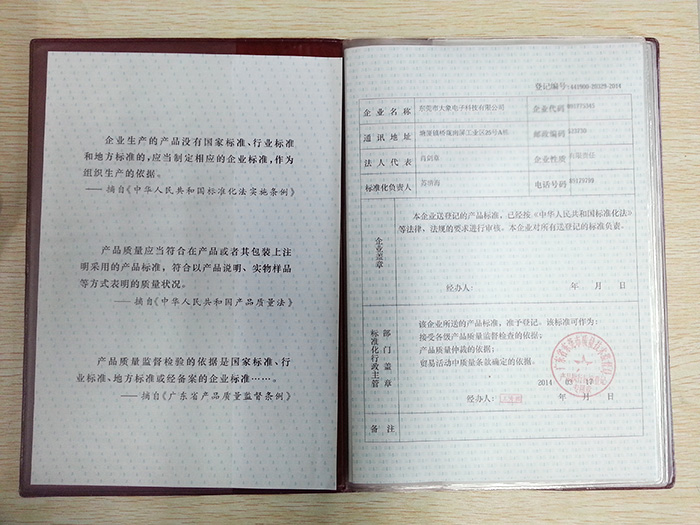 企业生产的产品没有国家标准、行业标准
和地方标准的，应当制定相应的企业标准，作为
组织生产的依据。
——摘自《中华人民共和国标准化法实施条例》
产品质量应当符合在产品或者其包装上注
明采用的产品标准，符合以产品说明、实物样品
等方式表明的质量状况。
——摘自《中华人民共和国产品质量法》
产品质量监督检验的依据是国家标准、行
业标准、地方标准或经备案的企业标准……。
——摘自《广东省产品质量监督条例》
登记编号:441900-20329-2014
企业名称 东莞市大象电子科技有限公司 企业代码
通讯地址 塘厦镇桥陇南屏工业区25号A栋 邮政编码 523730
法人代表 企业性质 有限责任
标准化负责人 电话号码
企业盖章
本企业送登记的产品标准，已经按《中华人民共和国标准化法》
等法律、法规的要求进行审核。本企业对所有送登记的标准负责。
经办人: 年 月 日
标准化行政主管
部门盖章
该企业所送的产品标准，准予登记。该标准可作为:
接受各级产品质量监督检查的依据;
产品质量仲裁的依据;
贸易活动中质量条款确定的依据。
2014 03 17
经办人: 年 月 日
备注